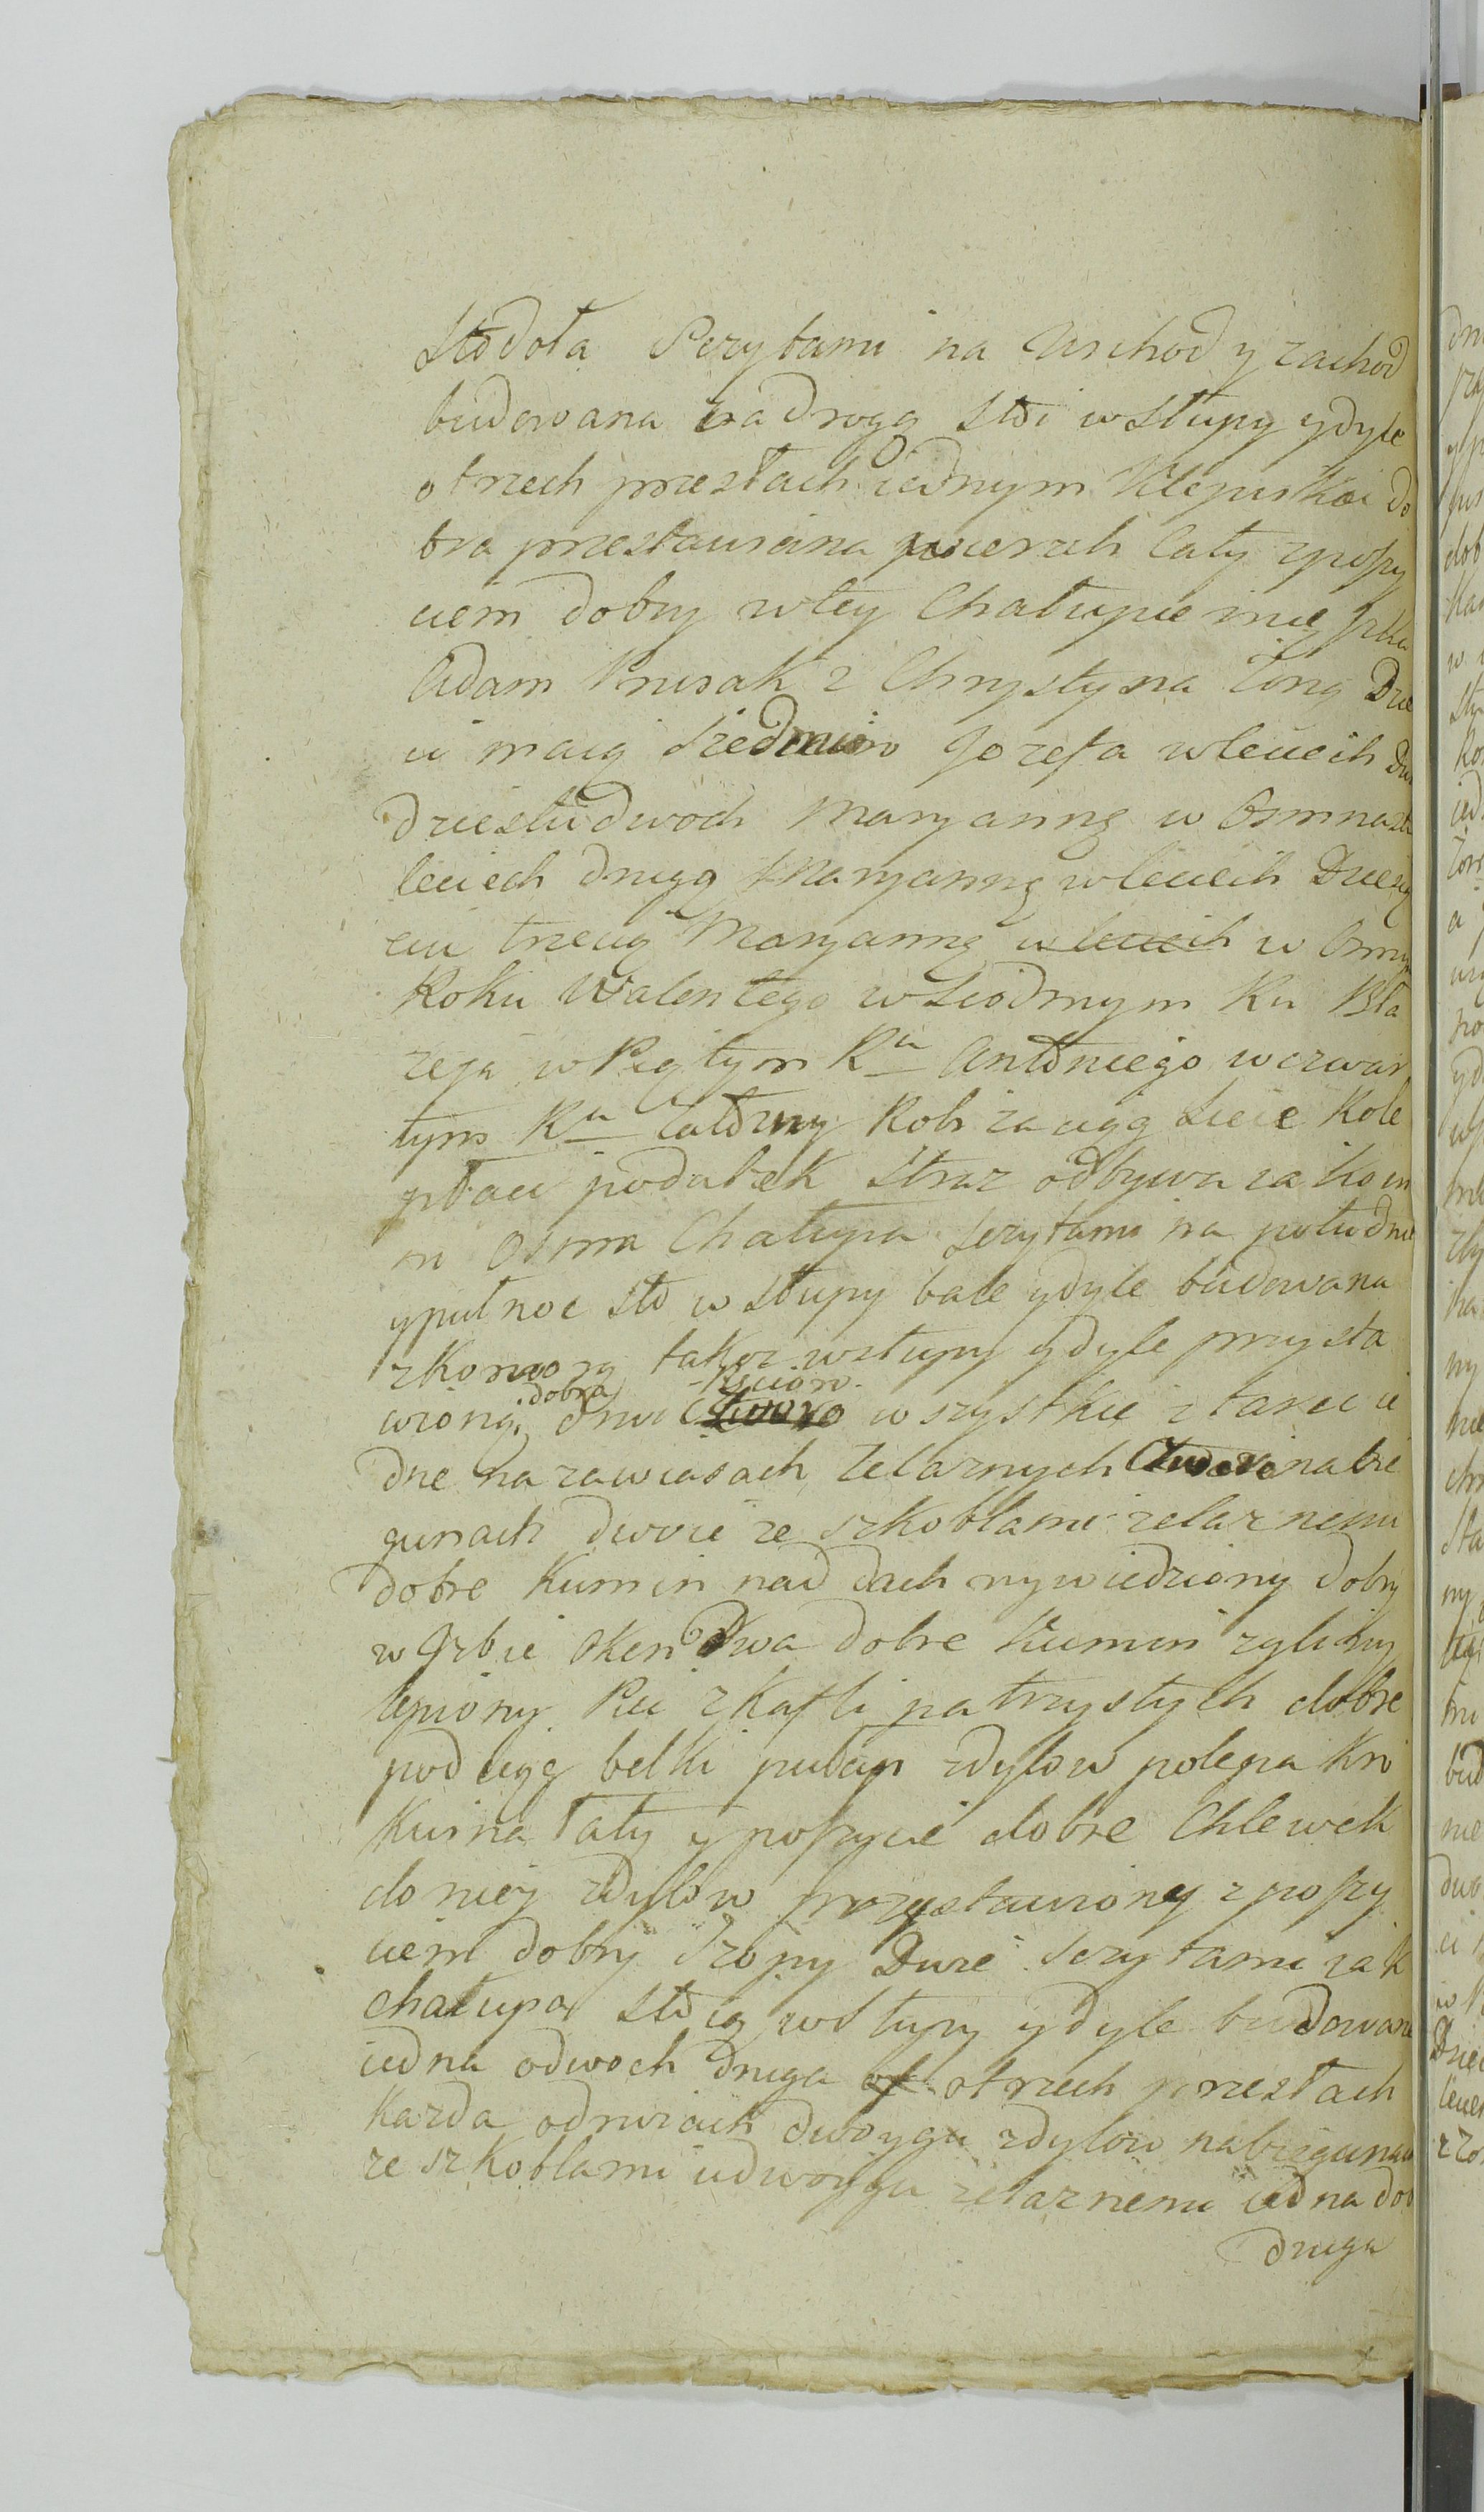 Stodoła Sczytami na Wschod y zachod
budowana za drogą stoi w Słupy y dyle
o trzech przesłach iednym klepisku do
bra przestawiona wierzch Cały z poszy
ciem dobry w tey Chałupie
Adam Prusak z Chrystyną Zoną Dzie
ci maią Siedmioro Jozefa w leciech dwu
dziestu dwoch Maryannę w Osmnastu
leciech drugą Maryannę w leciech Dziesię
ciu trzecią Maryannę w leciech w Osmym
Roku Walentego w Siodmym Ku Bła
zeja w Piątym Ku Antoniego w czwar
tym Ku Robi zaciąg Kole
płaci podatek Straz odbywa
m Osma Chałupa Sczytami na południe
y pułnoc sto w Słupy bale y dyle budowana
z Komorą takoz w słupy y dyle przysta
wioną dobra drzwi wszystkie z tarcic ie
dne na zawiasach zelaznych na bie
gunach dwoie ze szkoblami zelaznemi
dobre Kumin nad dach wywiedziony dobry
w Izbie Oken Dwa dobre Kumin z gliny
lepiony Piec z Kafli patrzystych dobre
podciąg belki pułap z dylow polepa Kro
kwi na łaty y poszycie dobre Chlewek
do niey z dylow przystawiony z poszy
ciem dobry Szopy Dwie Sczytami iak
chałupa stoią w Słupy y dyle budowane
iedna o dwoch druga o trzech przesłach
kazda o drzwiach dwoygu z dylow na biegunach
ze szkoblami u dwoygu zelaznemi iedna dob
druga